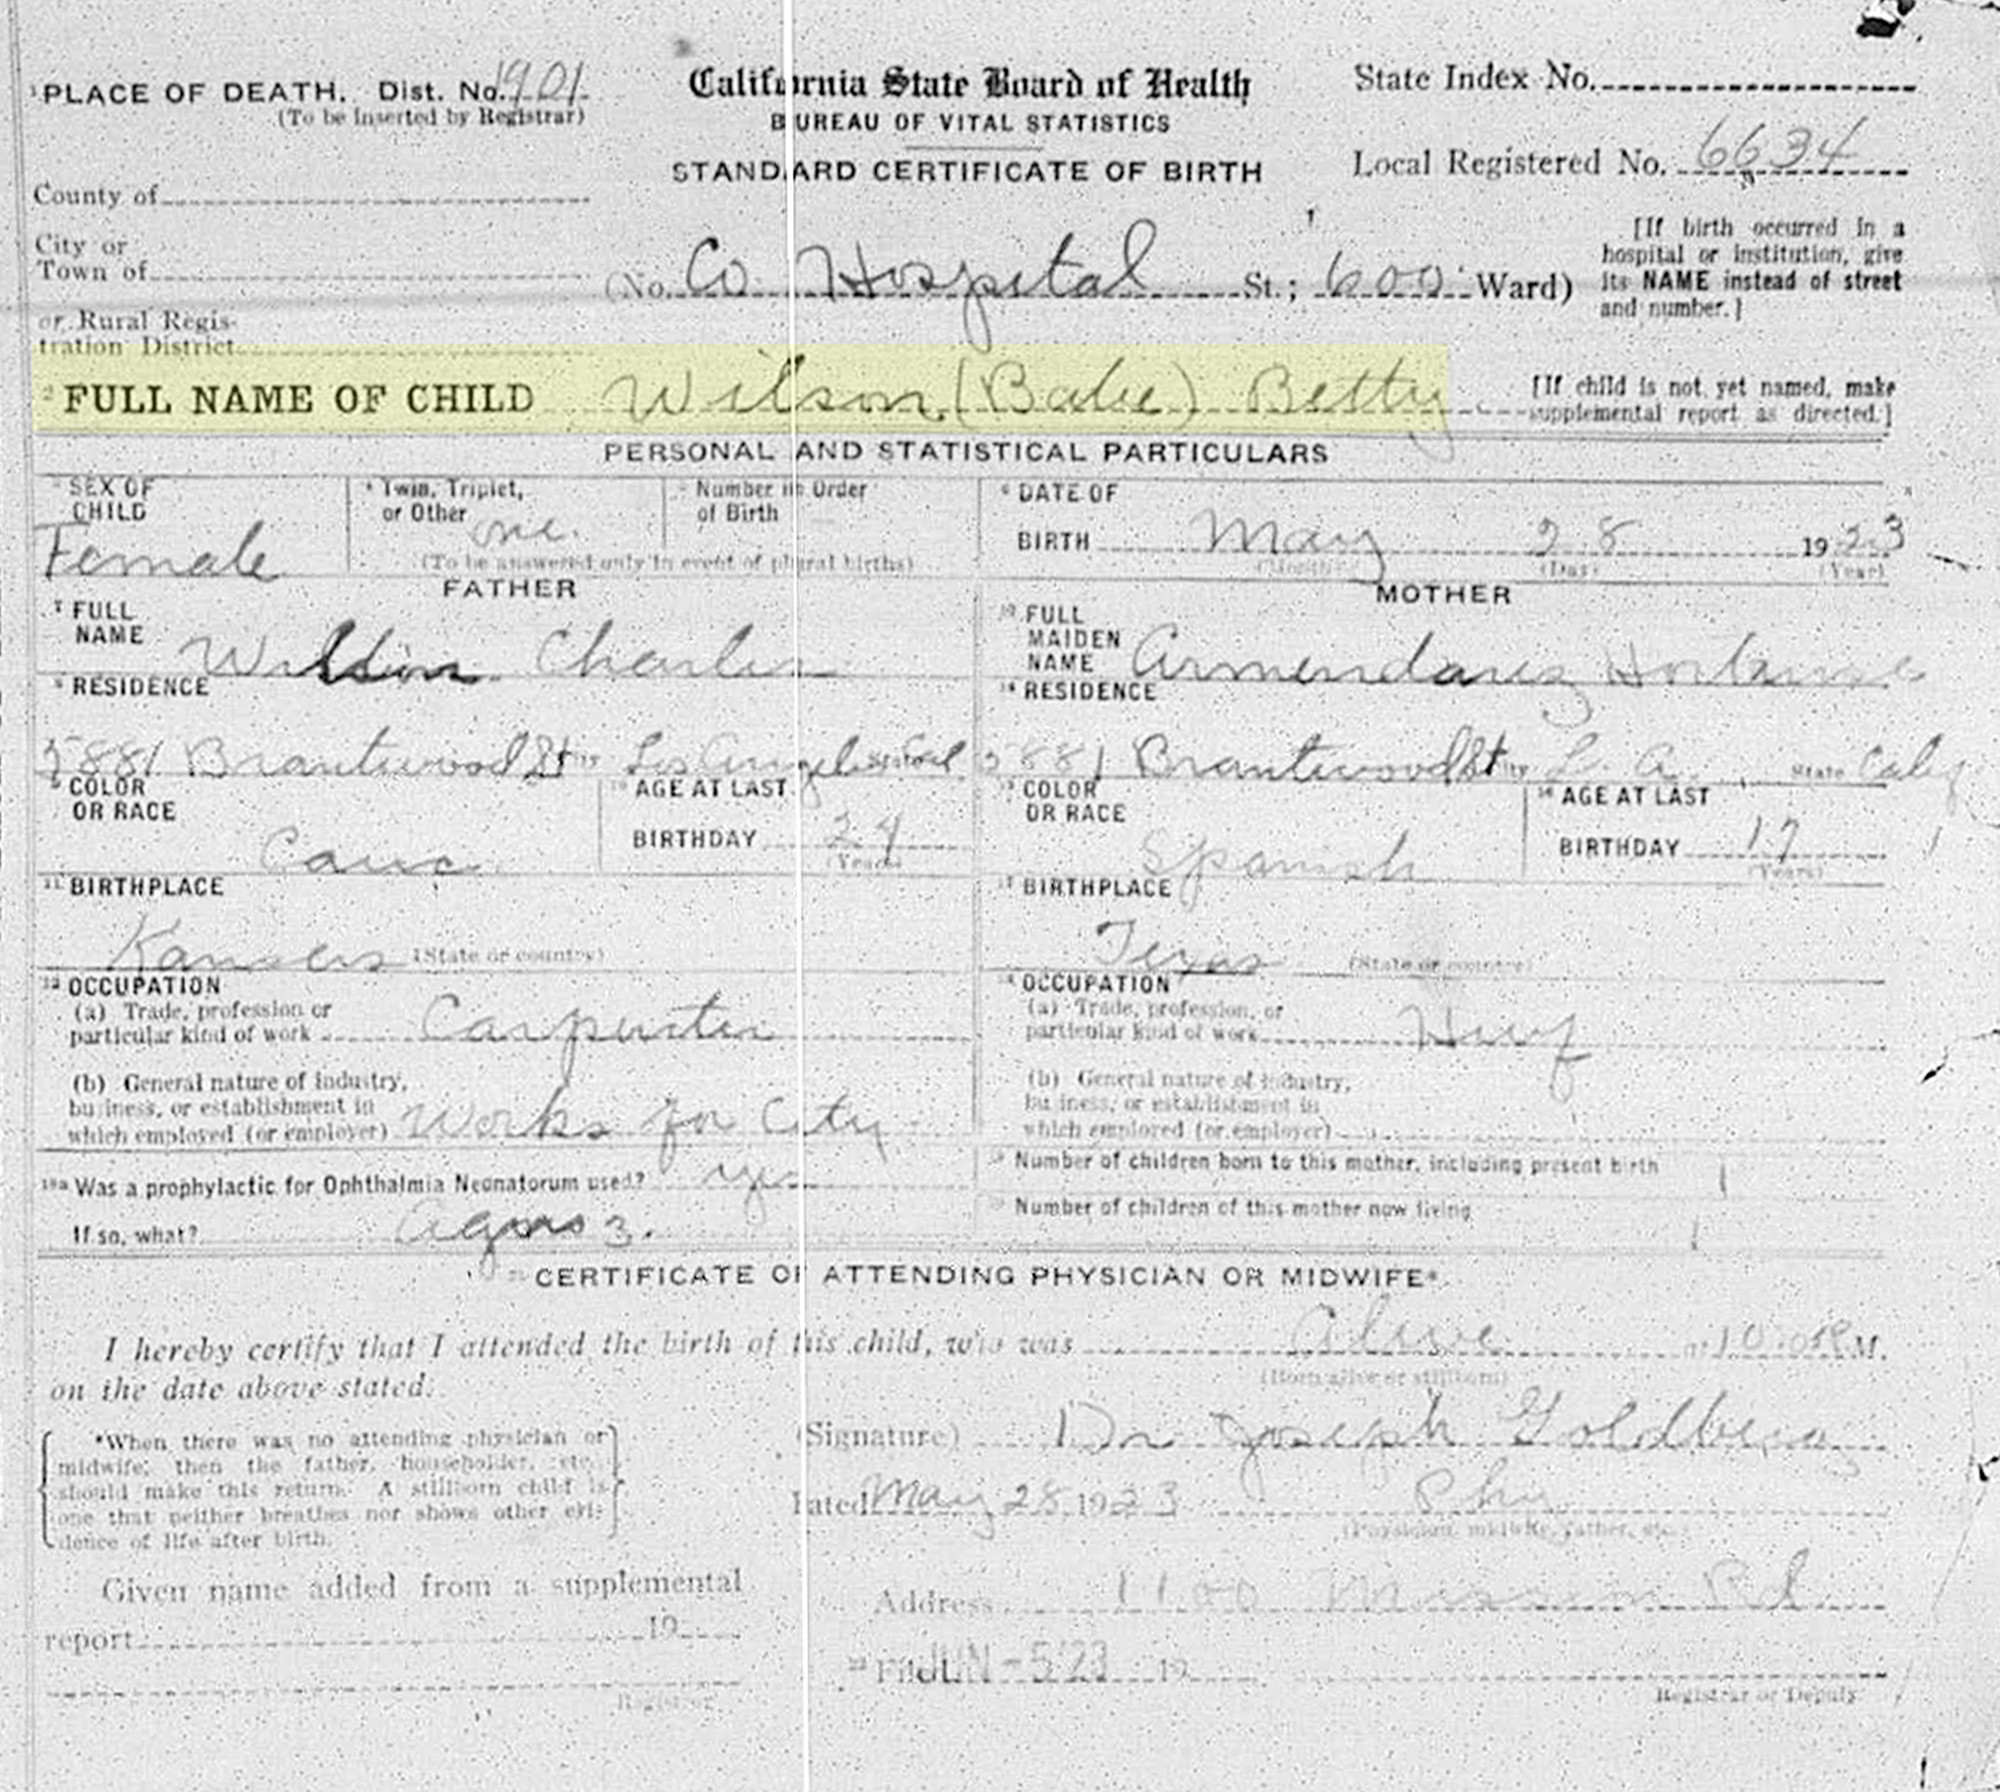 1 PLACE OF DEATH. Dist. No. 1901
(To be inserted by Registrar)
County of
City or
Town of
or Rural Regis-
tration District
California State Board of Health
BUREAU OF VITAL STATISTICS
STANDARD CERTIFICATE OF BIRTH
State Index No.
Local Registered No. 6634
(No. Co Hospital St.; 600 Ward)
[If birth occurred in a
hospital or institution, give
its NAME instead of street
and number.]
2 FULL NAME OF CHILD Wilson (Babe) Betty
[If child is not yet named, make
supplemental report as directed.]
PERSONAL AND STATISTICAL PARTICULARS
SEX OF
CHILD
Female
Twin, Triplet,
or Other one.
Number in Order
of Birth
(To be answered only in event of plural births)
6 DATE OF
BIRTH May 28 1923
(Month) (Day) (Year)
FATHER
7 FULL
NAME Wilson Charles
RESIDENCE
Brantwood St Los Angeles Cal
COLOR
OR RACE
Cauc
AGE AT LAST
BIRTHDAY 24
(Years)
11 BIRTHPLACE
Kansas (State or country)
OCCUPATION
(a) Trade, profession or
particular kind of work Carpenter
(b) General nature of industry,
business, or establishment in
which employed (or employer) Works for City
MOTHER
FULL
MAIDEN
NAME Armendarez Hortense
RESIDENCE
881 Brantwood St City L. A. State Calif
COLOR
OR RACE
Spanish
AGE AT LAST
BIRTHDAY 17
(Years)
BIRTHPLACE
Texas (State or country)
OCCUPATION
(a) Trade, profession, or
particular kind of work
(b) General nature of industry,
business, or establishment in
which employed (or employer)
Was a prophylactic for Ophthalmia Neonatorum used? yes
If so, what?
Number of children born to this mother, including present birth 1
Number of children of this mother now living 1
CERTIFICATE OF ATTENDING PHYSICIAN OR MIDWIFE*
I hereby certify that I attended the birth of this child, who was Alive at 10:05 P.M.
(Born alive or stillborn)
on the date above stated.
*When there was no attending physician or
midwife, then the father, householder, etc.
should make this return. A stillborn child is
one that neither breathes nor shows other evi-
dence of life after birth.
(Signature) Dr Joseph Goldberg
Dated May 28 1923 Phy
(Physician, midwife, father, etc.)
Given name added from a supplemental
report 19
Registrar
Address 1100 Mission Rd
Filed JUN -5'23 19
Registrar or Deputy